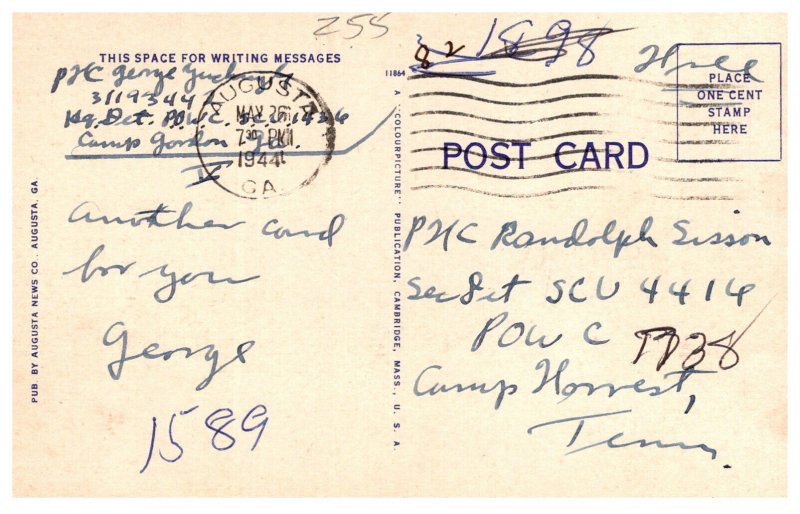 255
THIS SPACE FOR WRITING MESSAGES
Pfc George
3119344
Hq. Det. POW C. S.C.U. 1436
Camp Gordon Ga.
AUGUSTA
MAY 26
7 30 PM
1944
GA.
V
Another card
for you
George
1589
PUB. BY AUGUSTA NEWS CO., AUGUSTA, GA.
11864
A "COLOURPICTURE" PUBLICATION, CAMBRIDGE, MASS., U. S. A.
82
1898
Free
PLACE
ONE CENT
STAMP
HERE
POST CARD
Pfc Randolph Sisson
Sec Det SCU 4414
POW C
1738
Camp Forrest,
Tenn.